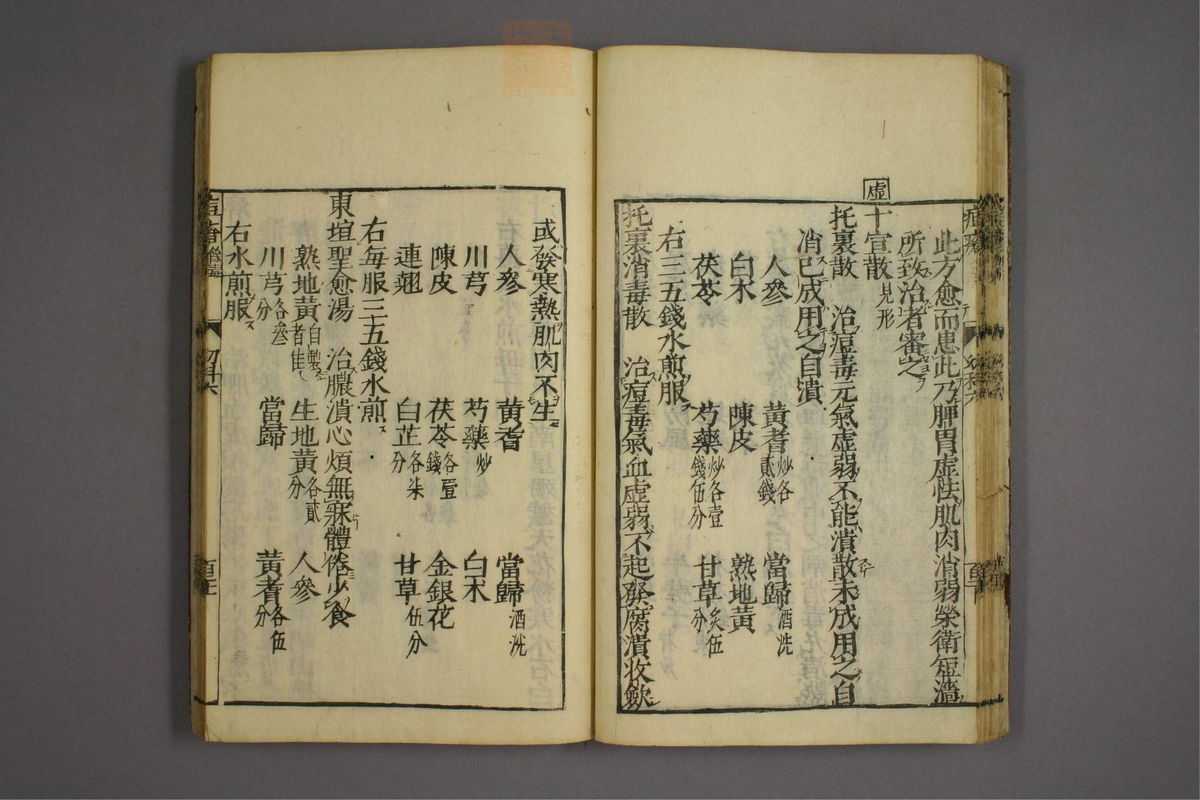 此方愈而患此乃脾胃虛怯肌肉消弱榮衛短澁
所致治者審之
虛
十宣散見形
托裏散 治痘毒元氣虛弱不能潰散未成用之自
消已成用之自潰
人參 黃耆炒各貳錢 當歸酒洗
白朮 陳皮 熟地黃
茯苓 芍藥炒各壹錢伍分 甘草炙伍分
右三五錢水煎服
托裏消毒散 治痘毒氣血虛弱不起發腐潰收歛
或發寒熱肌肉不生
人參 黃耆 當歸酒洗
川芎 芍藥炒 白朮
陳皮 茯苓各壹錢 金銀花
連翹 白芷各柒分 甘草伍分
右每服三五錢水煎
東垣聖愈湯 治膿潰心煩無寐體倦少食
熟地黃自製者佳 生地黃各貳分 人參
川芎各叄分 當歸 黃耆各伍分
右水煎服